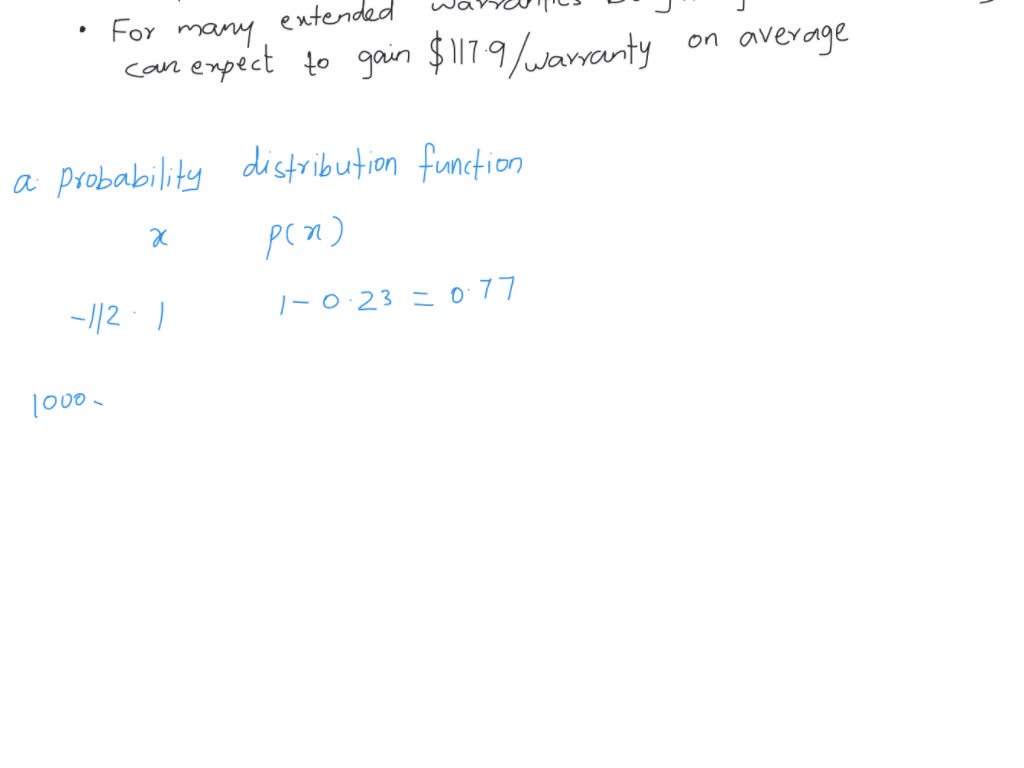 • For many extended
can expect to gain $117.9/warranty on average
a. probability distribution function
x p(x)
-112.1 1-0.23 = 0.77
1000-